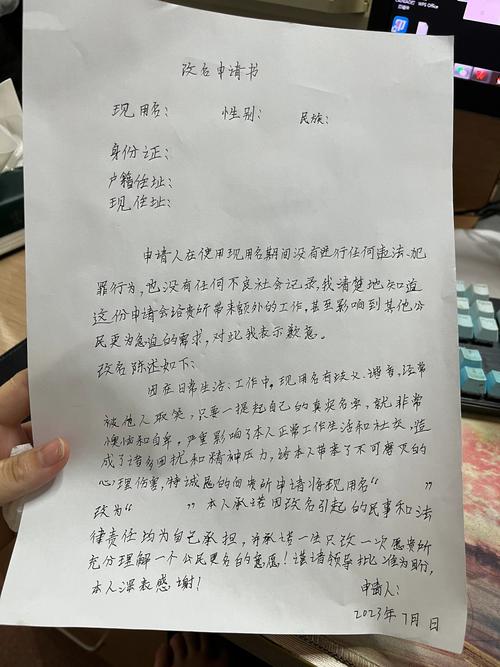 WPS Office
改名申请书
现用名： 性别： 民族：
身份证：
户籍住址：
现住址：
申请人在使用现用名期间没有进行任何违法、犯
罪行为，也没有任何不良社会记录，我清楚地知道
这份申请会给贵所带来额外的工作，甚至影响到其他公
民更为急迫的需求，对此我表示歉意。
改名陈述如下：
因在日常生活、工作中，现用名有歧义、谐音，经常
被他人取笑，只要一提起自己的真实名字，就非常
懊恼和自卑，严重影响了本人正常工作生活和社交，造
成了诸多困扰和精神压力，给本人带来了不可磨灭的
心理伤害，特诚恳的向贵所申请将现用名“ ”
改为“ ”本人承诺因改名引起的民事和法
律责任均为自己承担，并承诺一生只改一次愿贵所
充分理解一个公民更名的意愿！谨请领导批准为盼，
本人深表感谢！
申请人：
2023年7月 日